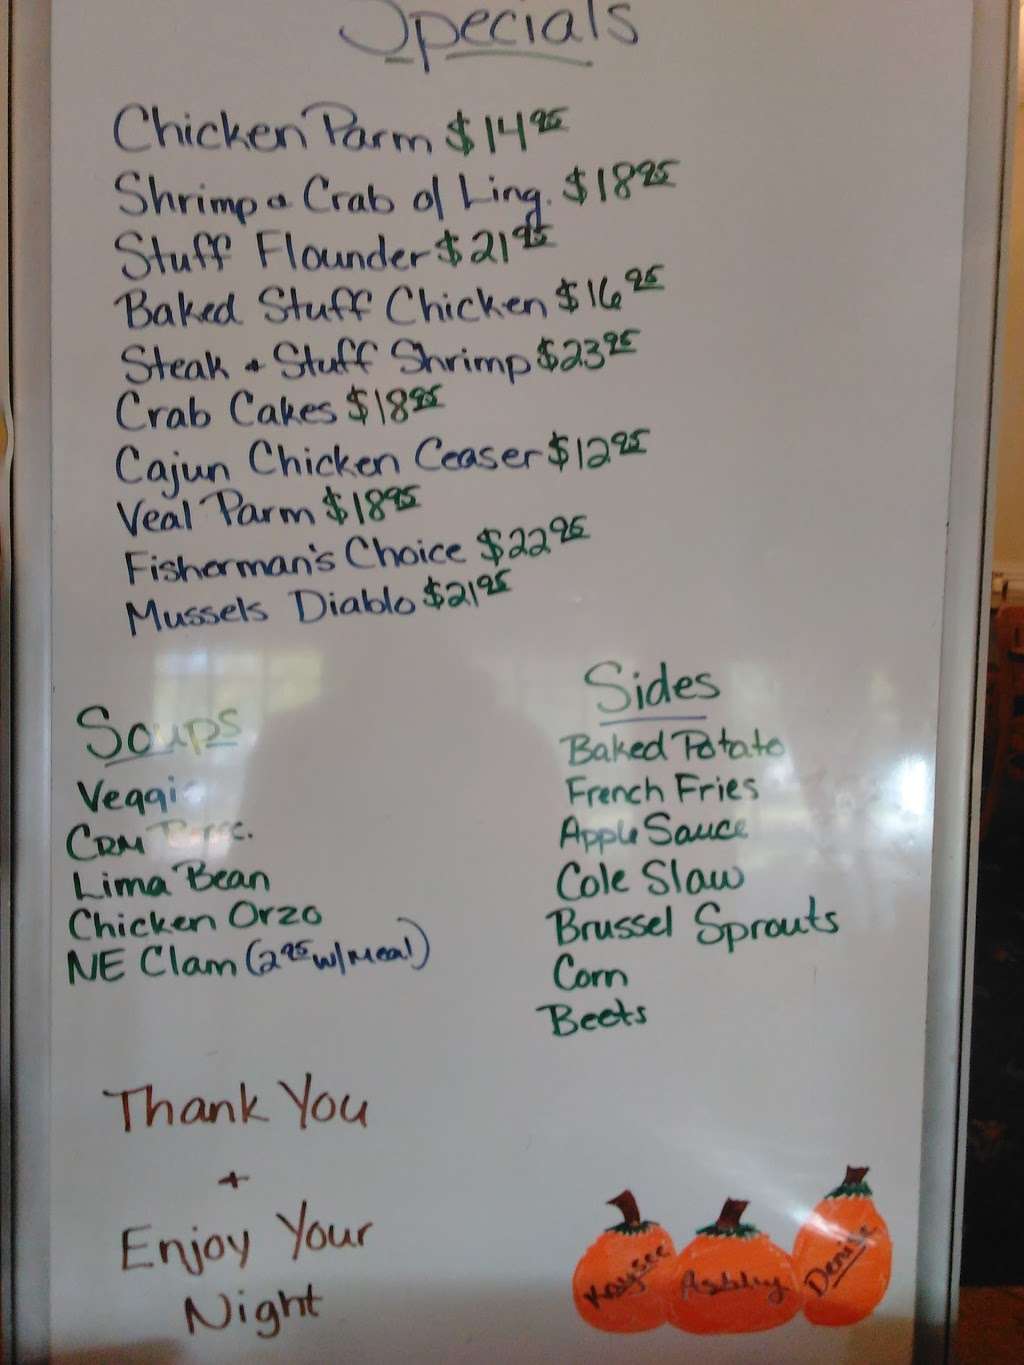 Specials
Chicken Parm $14.95
Shrimp & Crab o/ Ling. $18.95
Stuff Flounder $21.95
Baked Stuff Chicken $16.95
Steak + Stuff Shrimp $23.95
Crab Cakes $18.95
Cajun Chicken Ceaser $12.95
Veal Parm $18.95
Fisherman's Choice $22.95
Mussels Diablo $21.95
Soups
Veggi
CRM
Lima Bean
Chicken Orzo
NE Clam (2.95 w/meal)
Sides
Baked Potato
French Fries
Apple Sauce
Cole Slaw
Brussel Sprouts
Corn
Beets
Thank You
+
Enjoy Your
Night
Kaysee
Ashley
Denise